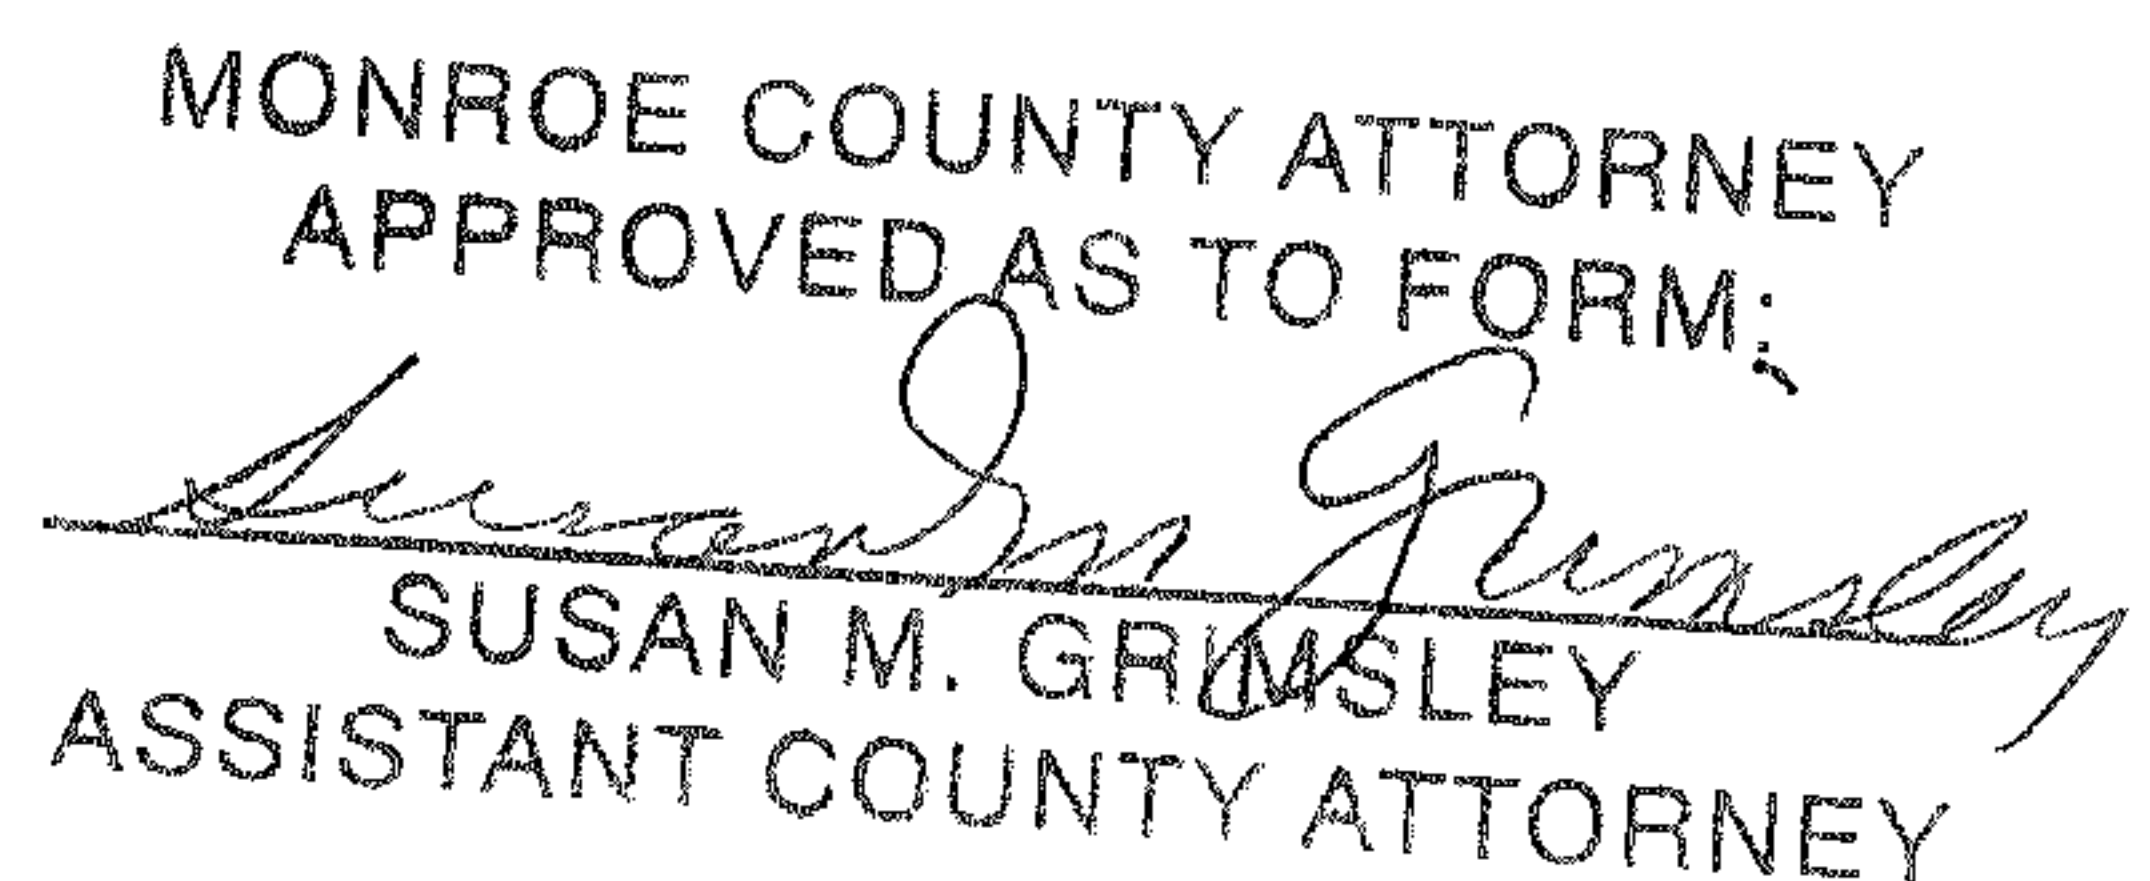 MONROE COUNTY ATTORNEY
APPROVED AS TO FORM:
Susan M Grimsley
SUSAN M. GRIMSLEY
ASSISTANT COUNTY ATTORNEY